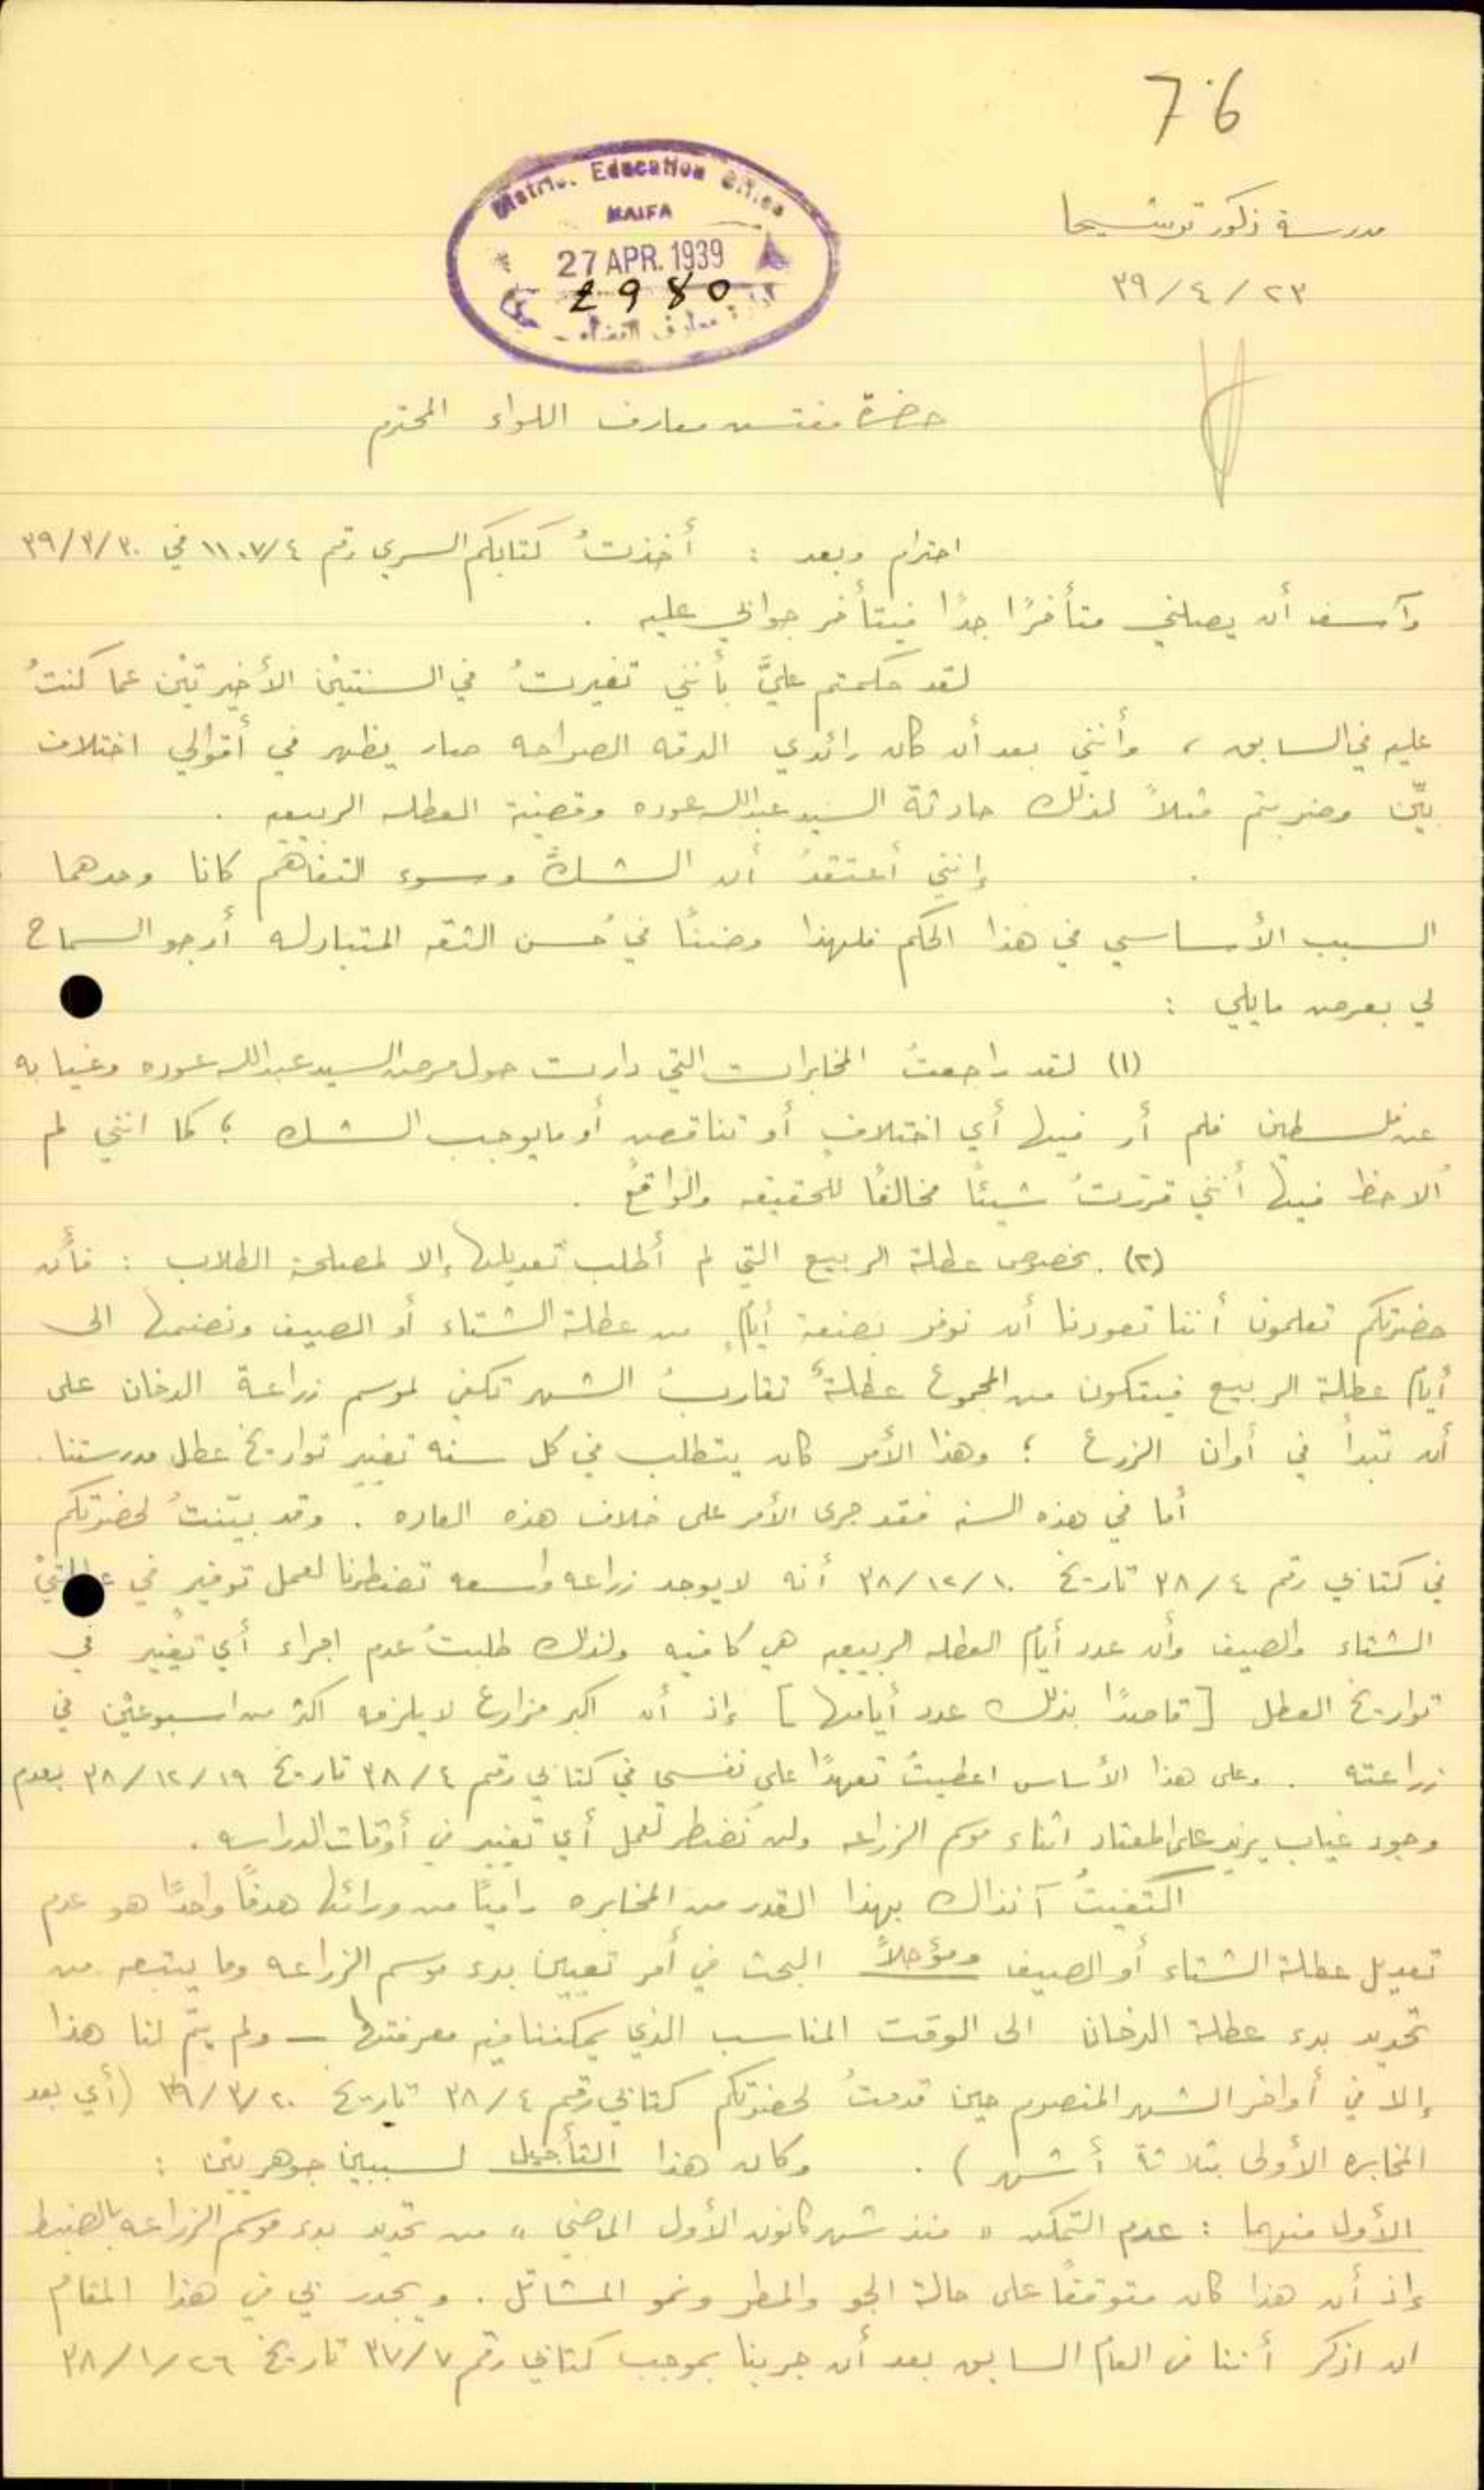 76
District Education Office
HAIFA
27 APR. 1939
2980
ادارة معارف القضاء
مدرسة ذكور ترشيحا
٢٣/٤/٣٩
حضرة مفتش معارف اللواء المحترم
احترام وبعد : أخذتُ كتابكم السري رقم ١١٠٧/٤ في ٣٠/٣/٣٩
وآسف أن يصلني متأخرًا جدًا فيتأخر جوابي عليه .
لقد حكمتم عليَّ بأنني تغيرتُ في السنتيْن الأخيرتيْن عما كنتُ
عليه في السابق ، وأنني بعد أن كان رائدي الدقه الصراحه صار يظهر في أقوالي اختلاف
بيّن وضربتم مثلاً لذلك حادثة السيد عبدالله عوده وقضية العطله الربيعيه .
إنني أعتقدُ أن الشكَّ وسوء التفاهم كانا وحدهما
السبب الأساسي في هذا الحكم فلهذا وضنًا في حُسن الثقه المتبادله أرجو السماح
لي بعرض مايلي :
(١) لقد راجعتُ المخابرات التي دارت حول مرض السيد عبدالله عوده وغيابه
عن فلسطين فلم أر فيها أي اختلافٍ أو تناقضٍ أو مايوجب الشك ؛ كما انني لم
ألاحظ فيها أنني قرّرتُ شيئًا مخالفًا للحقيقه والواقع .
(٢) بخصوص عطلة الربيع التي لم أطلب تعديلها إلا لمصلحة الطلاب : فأن
حضرتكم تعلمون أننا تعودنا أن نوفر بضعة أيامٍ من عطلة الشتاء أو الصيف ونضمها الى
أيام عطلة الربيع فيتكون من المجموع عطلةٌ تقاربُ الشهر تكفي لموسم زراعة الدخان على
أن تبدأ في أوان الزرع ؛ وهذا الأمر كان يتطلب في كل سنه تغيير تواريخ عطل مدرستنا .
أما في هذه السنه فقد جرى الأمر على خلاف هذه العاده . وقد بيّنتُ لحضرتكم
في كتابي رقم ٣٨/٤ تاريخ ١٠/١٢/٣٨ أنه لايوجد زراعه واسعه تضطرنا لعمل توفيرٍ في عطلتيْ
الشتاء والصيف وأن عدد أيام العطله الربيعيه هي كافيه ولذلك طلبتُ عدم اجراء أي تغيير في
تواريخ العطل [ قاصدًا بذلك عدد أيامها ] إذ أن اكبر مزارع لايلزمه اكثر من اسبوعيْن في
زراعته . وعلى هذا الأساس اعطيتُ تعهدًا على نفسي في كتابي رقم ٣٨/٤ تاريخ ١٩/١٢/٣٨ بعدم
وجود غياب يزيد على المعتاد اثناء موسم الزراعه ولن نُضطر لعمل أي تغيير في أوقات الدراسه .
اكتفيتُ آنذاك بهذا القدر من المخابره راميًا من ورائها هدفًا واحدًا هو عدم
تعديل عطلة الشتاء أو الصيف ومؤجلاً البحث في أمر تعيين بدء موسم الزراعه وما يتبعه من
تحديد بدء عطلة الدخان الى الوقت المناسب الذي يمكننا فيه معرفتها — ولم يتمّ لنا هذا
إلا في أواخر الشهر المنصرم حين قدمتُ لحضرتكم كتابي رقم ٣٨/٤ تاريخ ٢٠/٣/٣٩ (أي بعد
المخابره الأولى بثلاثة أشهر) . وكان هذا التأجيل لسببين جوهريْن :
الأول منهما : عدم التمكن « منذ شهر كانون الأول الماضي » من تحديد بدء موسم الزراعه بالضبط
إذ أن هذا كان متوقفًا على حالة الجو والمطر ونمو المشاتل . ويجدر بي في هذا المقام
ان اذكر أننا في العام السابق بعد أن جرينا بموجب كتابي رقم ٣٧/٧ تاريخ ٢٦/١/٣٨